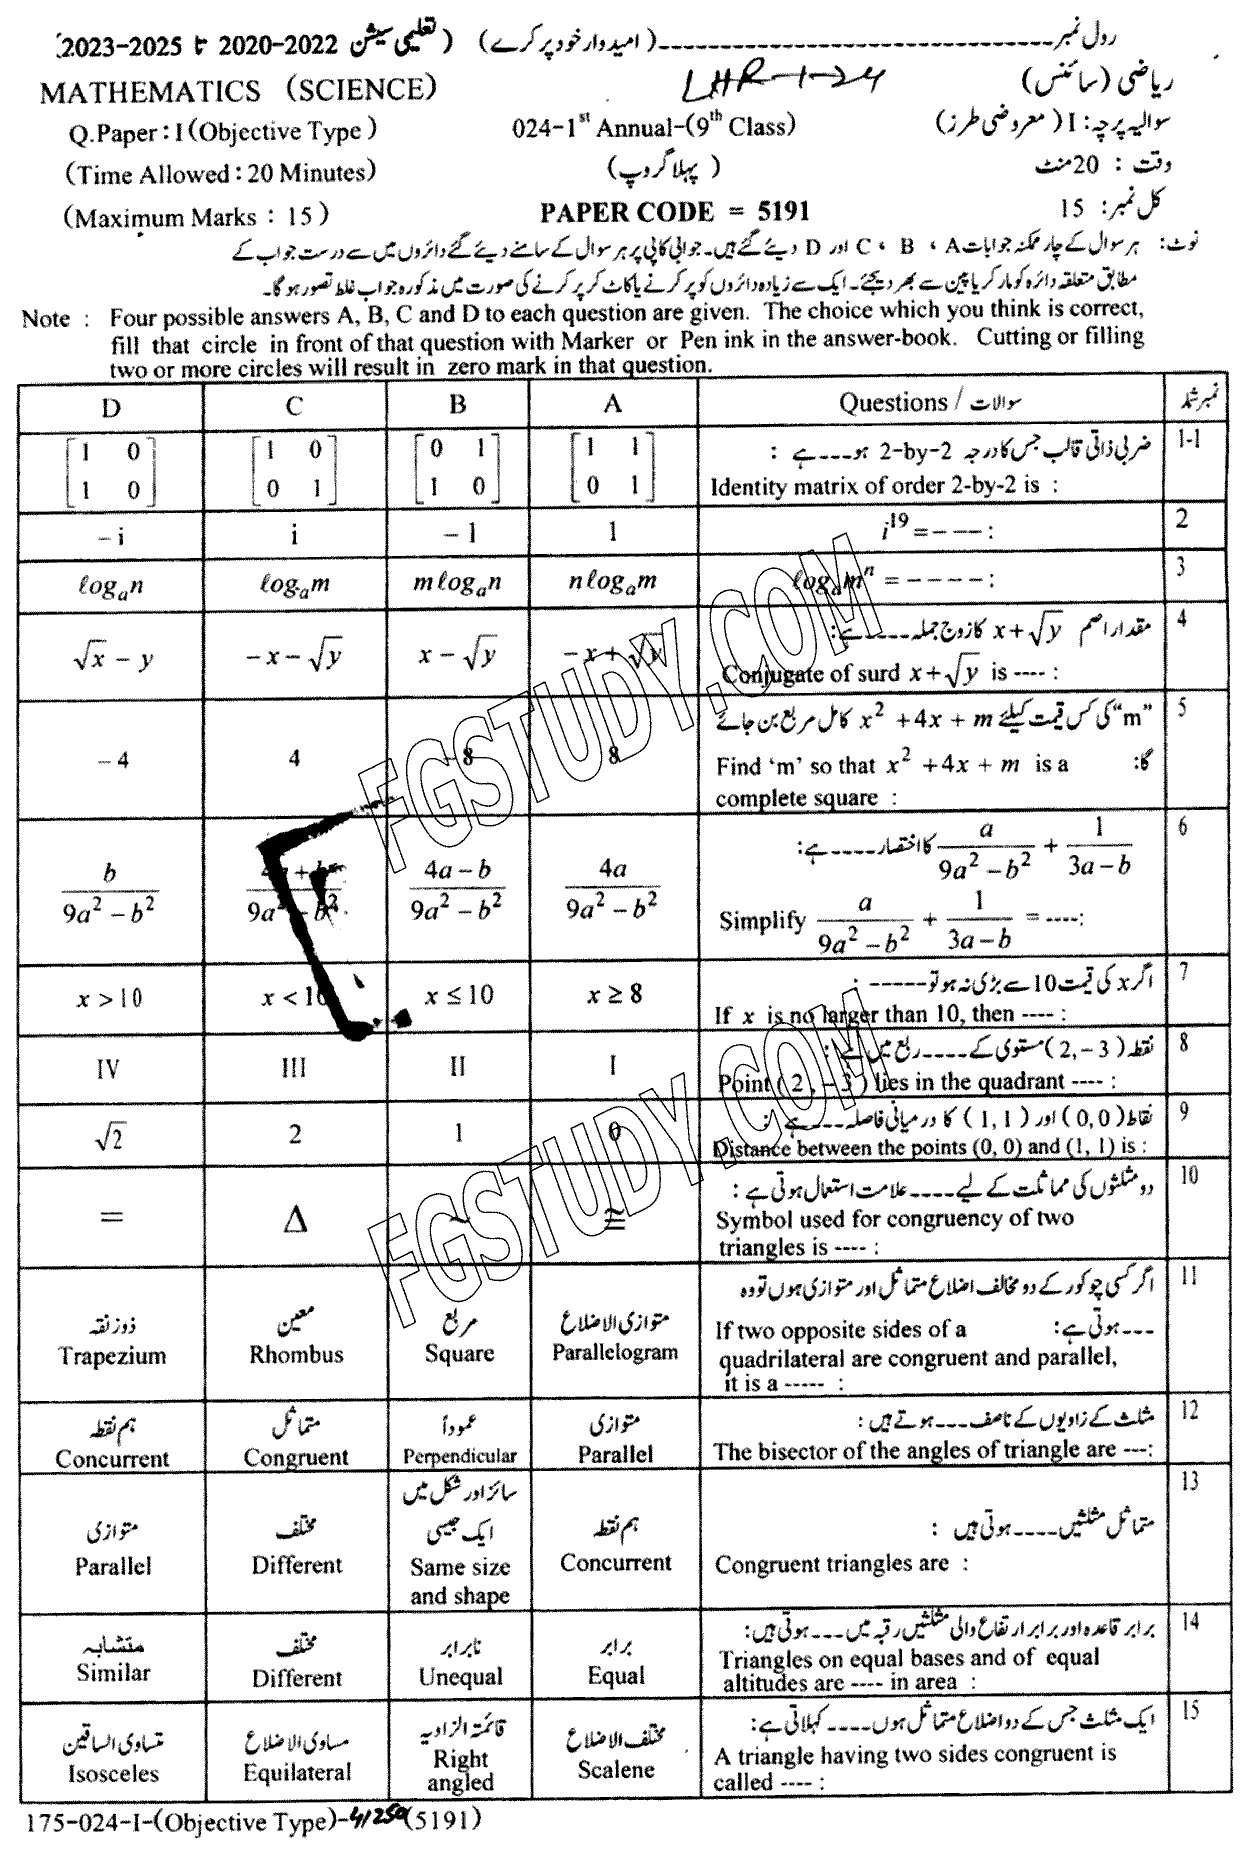 رول نمبر ------------------------------ (امیدوار خود پر کرے) (تعلیمی سیشن 2020-2022 تا 2023-2025
ریاضی (سائنس) LHR-1-24 MATHEMATICS (SCIENCE)
سوالیہ پرچہ : I (معروضی طرز) 024-1st Annual-(9th Class) Q.Paper : I (Objective Type)
وقت : 20 منٹ (پہلا گروپ) (Time Allowed : 20 Minutes)
کل نمبر : 15 PAPER CODE = 5191 (Maximum Marks : 15)
نوٹ : ہر سوال کے چار ممکنہ جوابات A ، B ، C اور D دیئے گئے ہیں۔ جوابی کاپی پر ہر سوال کے سامنے دیئے گئے دائروں میں سے درست جواب کے
مطابق متعلقہ دائرہ کو مارکر یا پین سے بھر دیجئے۔ ایک سے زیادہ دائروں کو پر کرنے یا کاٹ کر پر کرنے کی صورت میں مذکورہ جواب غلط تصور ہو گا۔
Note : Four possible answers A, B, C and D to each question are given. The choice which you think is correct,
fill that circle in front of that question with Marker or Pen ink in the answer-book. Cutting or filling
two or more circles will result in zero mark in that question.
D C B A Questions / سوالات نمبر شمار
1-1 ضربی ذاتی قالب جس کا درجہ 2-by-2 ہو ---- ہے :
Identity matrix of order 2-by-2 is :
[1 0; 1 0] [1 0; 0 1] [0 1; 1 0] [1 1; 0 1]
2 i^19 = ---- :
-i i -1 1
3 log_a m^n = ---- :
log_a n log_a m m log_a n n log_a m
4 مقدار اصم x+√y کا زوج جملہ ---- ہے :
Conjugate of surd x+√y is ---- :
√x - y -x-√y x-√y -x+√y
5 "m" کی کس قیمت کیلئے x² + 4x + m کامل مربع بن جائے گا :
Find 'm' so that x² + 4x + m is a
complete square :
-4 4 -8 8
6 a/(9a²-b²) + 1/(3a-b) کا اختصار ---- ہے :
Simplify a/(9a²-b²) + 1/(3a-b) = ---- :
b/(9a²-b²) 4a+b/(9a²-b²) 4a-b/(9a²-b²) 4a/(9a²-b²)
7 اگر x کی قیمت 10 سے بڑی نہ ہو تو ----- :
If x is no larger than 10, then ---- :
x > 10 x < 10 x ≤ 10 x ≥ 8
8 نقطہ (2, -3) مستوی کے ---- ربع میں ہے :
Point (2, -3) lies in the quadrant ---- :
IV III II I
9 نقاط (0,0) اور (1,1) کا درمیانی فاصلہ ---- ہے :
Distance between the points (0, 0) and (1, 1) is :
√2 2 1 0
10 دو مثلثوں کی مماثلت کے لیے ---- علامت استعمال ہوتی ہے :
Symbol used for congruency of two
triangles is ---- :
= Δ ~ ≅
11 اگر کسی چوکور کے دو مخالف اضلاع متماثل اور متوازی ہوں تو وہ
---- ہوتی ہے :
If two opposite sides of a
quadrilateral are congruent and parallel,
it is a ----- :
ذوزنقہ معین مربع متوازی الاضلاع
Trapezium Rhombus Square Parallelogram
12 مثلث کے زاویوں کے ناصف ---- ہوتے ہیں :
The bisector of the angles of triangle are ---:
ہم نقطہ متماثل عموداً متوازی
Concurrent Congruent Perpendicular Parallel
13 متماثل مثلثیں ---- ہوتی ہیں :
Congruent triangles are :
متوازی مختلف سائز اور شکل میں ایک جیسی ہم نقطہ
Parallel Different Same size and shape Concurrent
14 برابر قاعدہ اور برابر ارتفاع والی مثلثیں رقبہ میں ---- ہوتی ہیں :
Triangles on equal bases and of equal
altitudes are ---- in area :
متشابہ مختلف نابرابر برابر
Similar Different Unequal Equal
15 ایک مثلث جس کے دو اضلاع متماثل ہوں ---- کہلاتی ہے :
A triangle having two sides congruent is
called ---- :
متساوی الساقین مساوی الاضلاع قائمۃ الزاویہ مختلف الاضلاع
Isosceles Equilateral Right angled Scalene
175-024-I-(Objective Type)-41250 (5191)
FGSTUDY.COM
FGSTUDY.COM